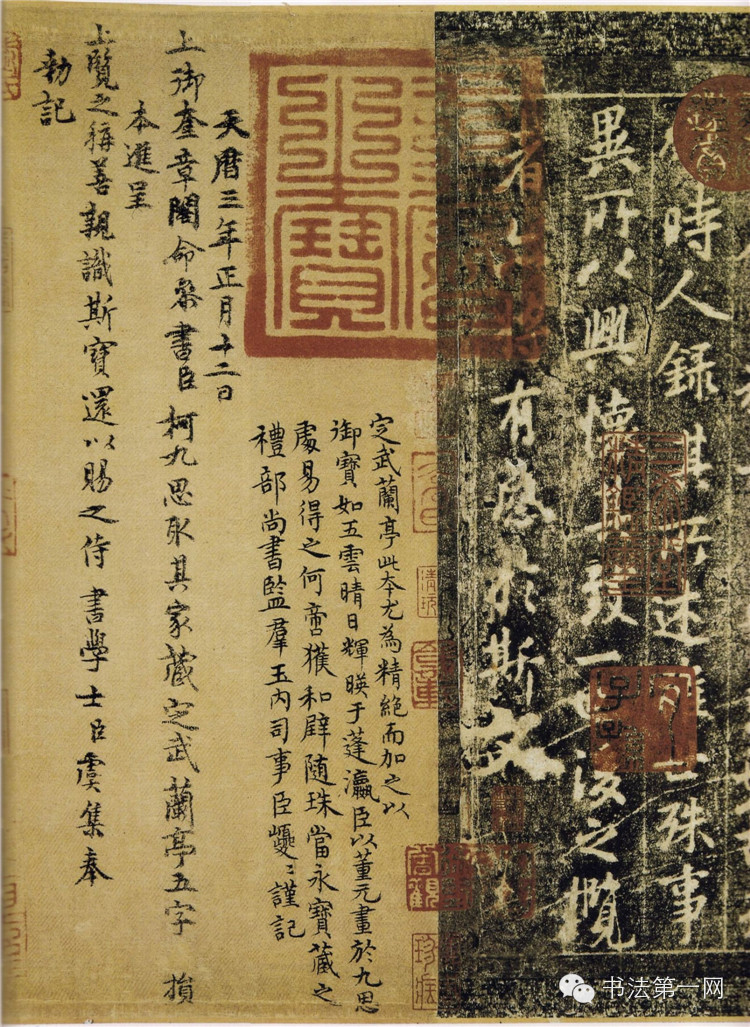 時人錄其所述雖世殊事
異所以興懷其致一也後之攬
者亦將有感於斯文
定武蘭亭此本尤為精絕而加之以
御寶如五雲晴日輝暎于蓬瀛臣以董元畫於九思
處易得之何啻獲和璧隨珠當永寶藏之
禮部尚書監羣玉內司事臣巙〻謹記
天曆三年正月十二日
上御奎章閣命叅書臣柯九思取其家藏定武蘭亭五字損
本進呈
上覽之稱善親識斯寶還以賜之侍書學士臣虞集奉
勅記
书法第一网